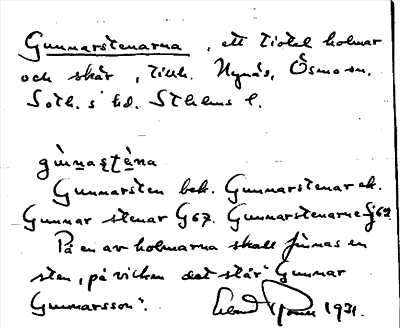 Gunnarstenarna, ett tiotal holmar
och skär, tillh. Nynäs, Ösmo sn.
Soth.s hd. Sthlms l.
gùnaʂtɛ̀na
Gunnarsten bek. Gunnarstenar ek.
Gunnar stenar G67. Gunnarstenarne Gj62
På en av holmarna skall finnas en
sten, på vilken det står "Gunnar
Gunnarsson". 1931.